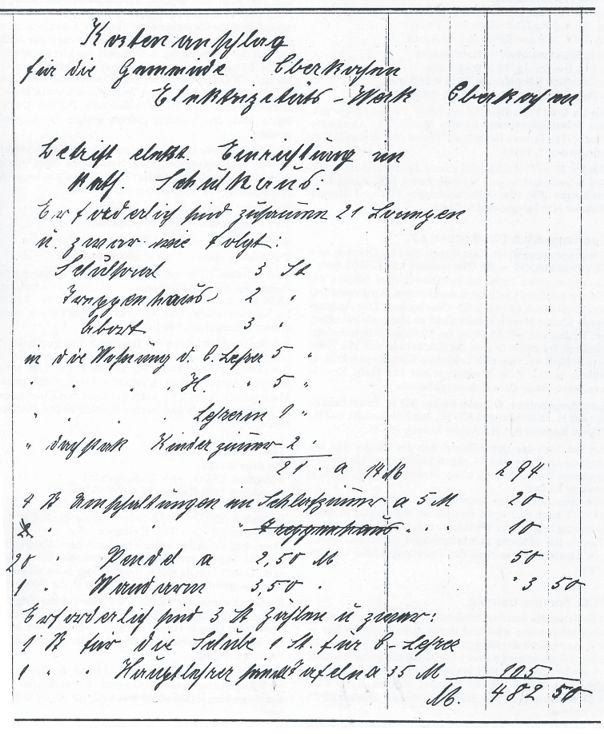 Kostenanschlag
für die Gemeinde Oberkochen
Elektrizitäts-Werk Oberkochen
Betrift elektr. Einrichtung im
Kath. Schulhaus:
Erforderlich sind zusammen 21 Lampen
u. zwar wie folgt:
Schulsaal 3 St
Treppenhaus 2 "
Abort 3 "
in die Wohnung d. O. Lehrer 5 "
" " " " H. " 5 "
" " " Lehrerin 1 "
" Dachstock Kinderzimmer 2 "
21 " a 14 M 294
4 St Umschaltungen im Schlafzimmer a 5 M 20
2 " " Treppenhaus " " 10
20 " Pendel a 2,50 M 50
1 " Wandarm 3,50 " 3 50
Erforderlich sind 3 St Zähler u zwar:
1 St für die Schule 1 St. für O-Lehrer
1 " " Hauptlehrer Tafeln a 35 M 105
M. 482 50